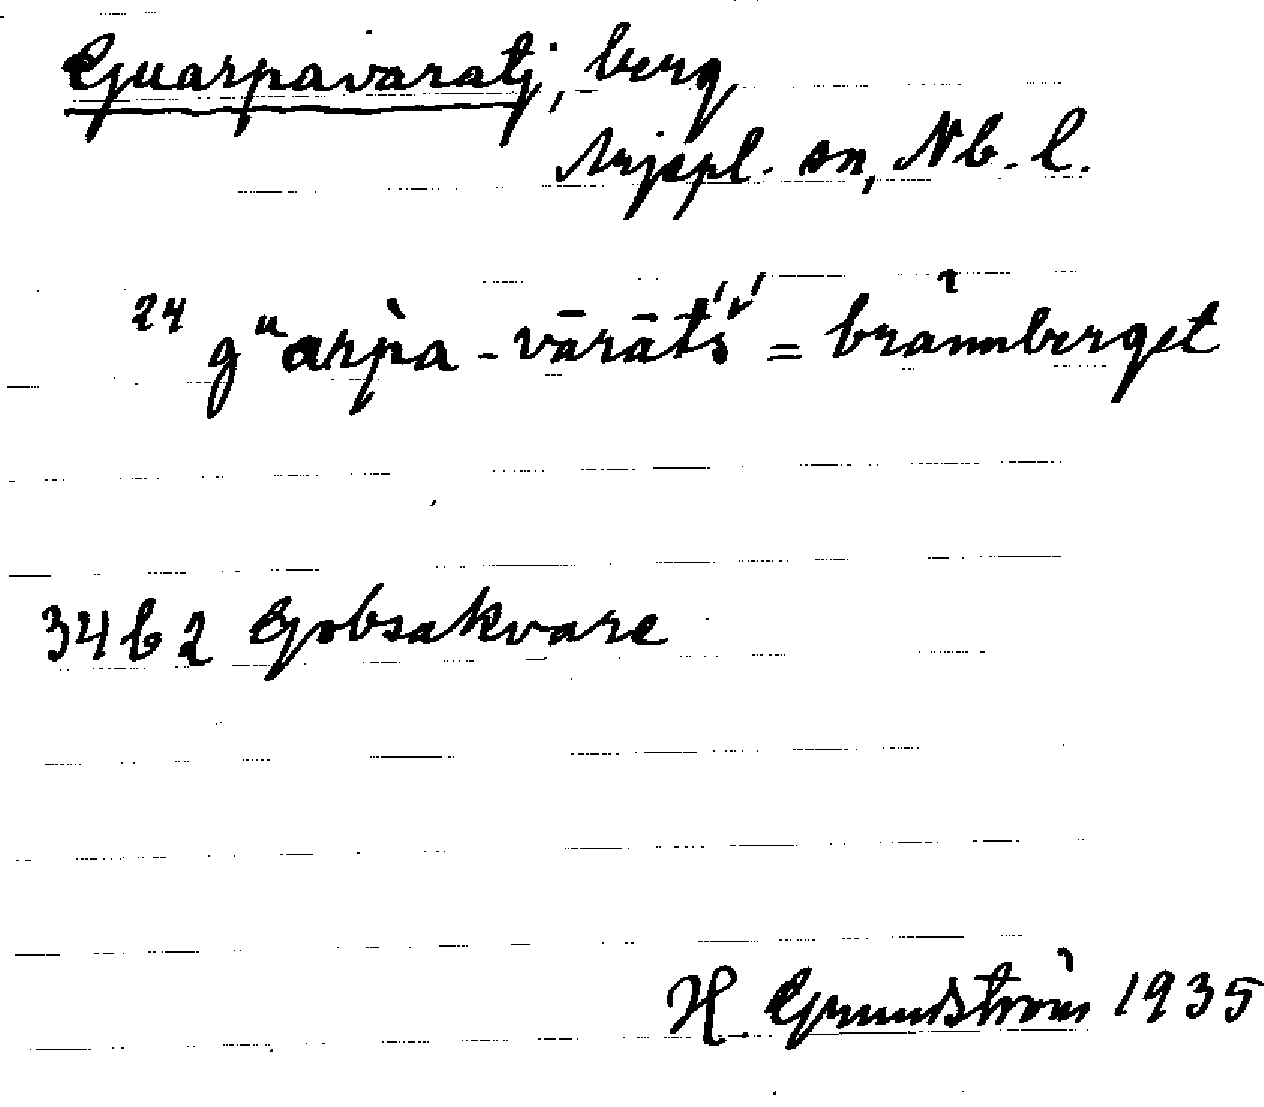 Guarpavaratj, berg
Arjepl. sn, Nb. l.
24 gᵘarpà-vārāt́š́ = brännberget
34 b 2 Gobsakvare
H. Grundström 1935